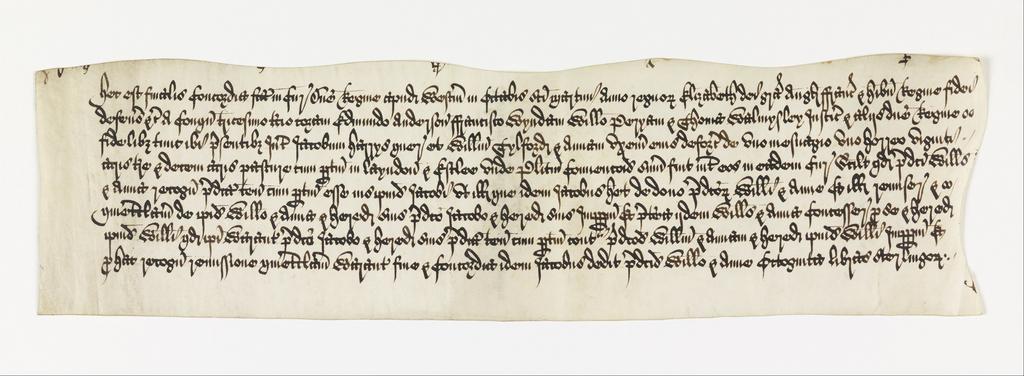 Hec est finalis concordia fca in Cur dne Regine apud Westm in Octabis sci Martini Anno regnor Elizabeth dei gra Angl Franc & Hibn Regine fidei
defens &c a conqu tricesimo coram Edmundo Anderson Francisco Wyndam Willo Peryam & Thoma Walmysley Justic & aliis dne Regine
fidelibz tunc ibi psentibz Int Jacobum Harrys quer et Willm Gylford & Annam uxem eius deforc de uno mesuagio uno horreo viginti
acris tre & decem acris pasture cum ptin in Layndon & Estlee unde plitm convencois sum fuit int eos in eadem Cur Scilt qd pdci Wills
& Anna recogn pdca ten cum ptin esse ius ipius Jacobi ut ill que idem Jacobus het de dono pdcor Willi & Anne Et ill remiser &
quietclam de ipis Willo & Anna & hered suis pdco Jacobo & hered suis Imppm Et pterea iidem Wills & Anna concesser p se & hered
ipius Willi qd ipi Warant pdco Jacobo & hered suis pdca ten cum ptin cont pdcos Willm & Annam & hered ipius Willi Imppm Et
p hac recogn remissione quietclam Warant fine & concordia idem Jacobus dedit pdcis Willo & Anne Octoginta libras sterlingor